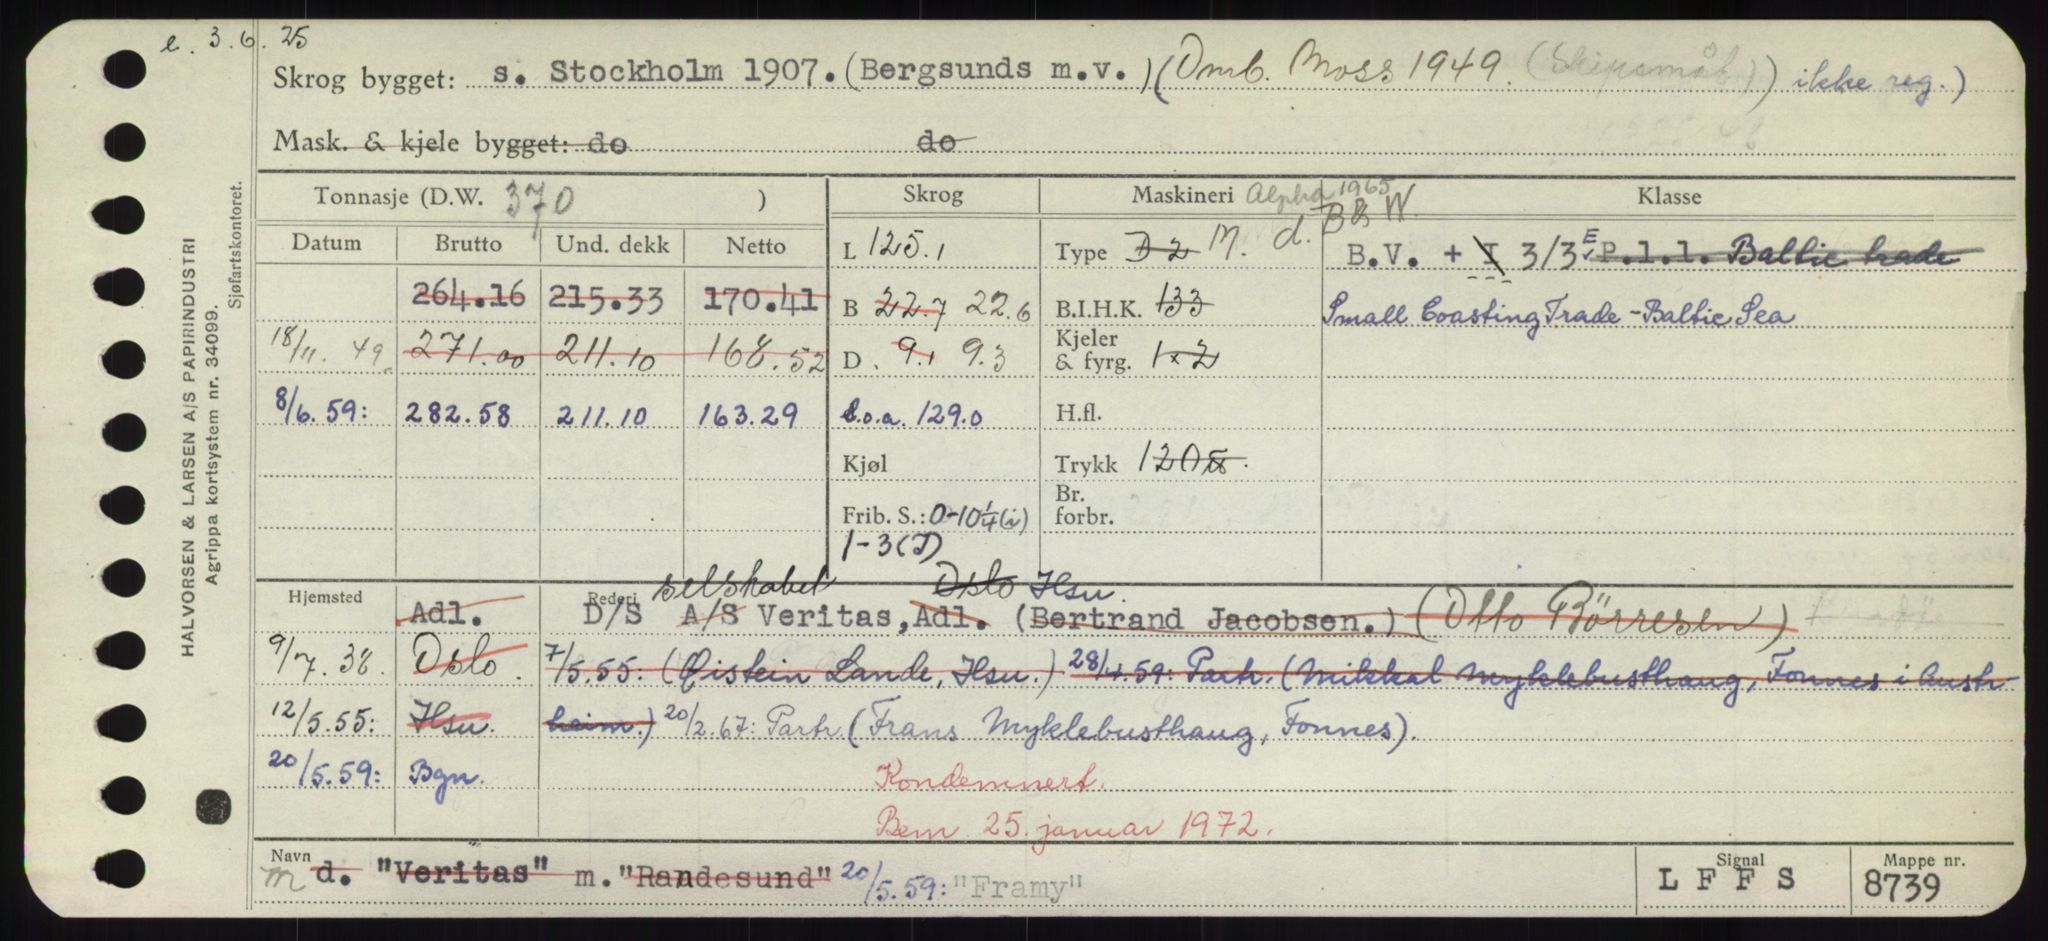 e. 3.6.25
Skrog bygget: s. Stockholm 1907. (Bergsunds m.v.) (Omb. Moss 1949. ikke reg.)
Mask. & kjele bygget: do do
Tonnasje (D.W. 370 ) Skrog Maskineri Alpha 1965 Klasse
Datum Brutto Und. dekk Netto L 125.1 Type D2 M. d. B & W. B.V. + I 3/3 E P.l.l. Baltic trade
264.16 215.33 170.41 B 22.7 22.6 B.I.H.K. 133 Small Coasting Trade - Baltic Sea
18/11. 49. 271.00 211.10 168.52 D. 9.1 9.3 Kjeler & fyrg. 1x2
8/6.59: 282.58 211.10 163.29 l.o.a. 129.0 H.fl.
Kjøl Trykk 120
Frib. S.: 0-10 1/4 (i) Br. forbr.
1-3 (T)
selskabet Oslo Hsu.
Hjemsted Adl. Rederi D/S A/S Veritas, Adl. (Bertrand Jacobsen.) (Otto Börresen)
9/7.38. Oslo. 7/5.55: (Øistein Lande, Hsu.) 28/4.59: Partr. (Mikkal Myklebusthaug, Fonnes i Austr-
12/5.55: Hsu. heim.) 20/2.67: Partr. (Frans Myklebusthaug, Fonnes).
20/5.59: Bgn. Kondemnert.
Bem. 25. januar 1972.
Navn Signal Mappe nr.
m d. "Veritas" m. "Randesund" 20/5.59: "Framy" LFFS 8739
HALVORSEN & LARSEN A/S PAPIRINDUSTRI
Agrippa kortsystem nr. 34099.
Sjøfartskontoret.